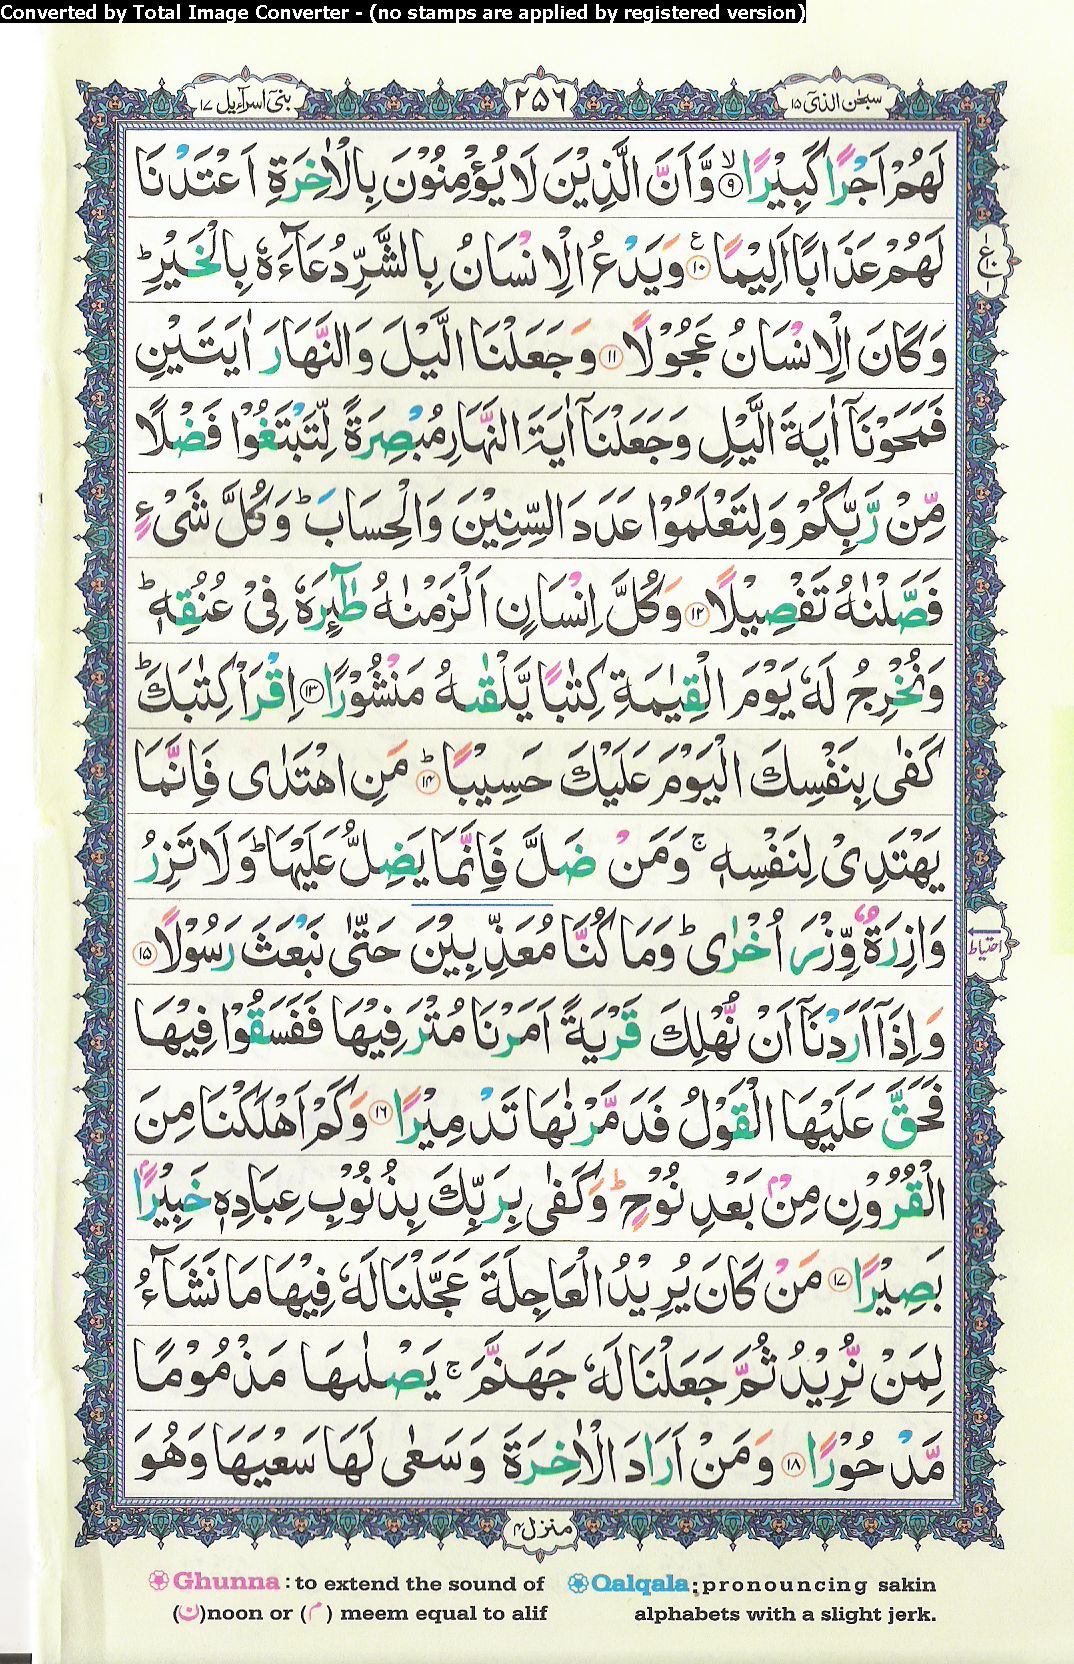 Converted by Total Image Converter - (no stamps are applied by registered version)
سبحٰن الذیٓ ۱۵
۲۵۶
بنیٓ اسرآءیل ۱۷
لَهُمْ اَجْرًا كَبِيْرًا ۙ‏﴿۹﴾ وَّاَنَّ الَّذِيْنَ لَا يُؤْمِنُوْنَ بِالْاٰخِرَةِ اَعْتَدْنَا
لَهُمْ عَذَابًا اَلِيْمًا ﴿۱۰﴾ وَيَدْعُ الْاِنْسَانُ بِالشَّرِّ دُعَآءَهٗ بِالْخَيْرِ ؕ
وَكَانَ الْاِنْسَانُ عَجُوْلًا ﴿۱۱﴾ وَجَعَلْنَا الَّيْلَ وَالنَّهَارَ اٰيَتَيْنِ
فَمَحَوْنَآ اٰيَةَ الَّيْلِ وَجَعَلْنَآ اٰيَةَ النَّهَارِ مُبْصِرَةً لِّتَبْتَغُوْا فَضْلًا
مِّنْ رَّبِّكُمْ وَلِتَعْلَمُوْا عَدَدَ السِّنِيْنَ وَالْحِسَابَ ؕ وَكُلَّ شَیْءٍ
فَصَّلْنٰهُ تَفْصِيْلًا ﴿۱۲﴾ وَكُلَّ اِنْسَانٍ اَلْزَمْنٰهُ طٰٓئِرَهٗ فِیْ عُنُقِهٖ ؕ
وَنُخْرِجُ لَهٗ يَوْمَ الْقِيٰمَةِ كِتٰبًا يَّلْقٰىهُ مَنْشُوْرًا ﴿۱۳﴾ اِقْرَاْ كِتٰبَكَ ؕ
كَفٰى بِنَفْسِكَ الْيَوْمَ عَلَيْكَ حَسِيْبًا ؕ﴿۱۴﴾ مَنِ اهْتَدٰى فَاِنَّمَا
يَهْتَدِیْ لِنَفْسِهٖ ۚ وَمَنْ ضَلَّ فَاِنَّمَا يَضِلُّ عَلَيْهَا ؕ وَلَا تَزِرُ
وَازِرَةٌ وِّزْرَ اُخْرٰى ؕ وَمَا كُنَّا مُعَذِّبِيْنَ حَتّٰى نَبْعَثَ رَسُوْلًا ﴿۱۵﴾
وَاِذَآ اَرَدْنَآ اَنْ نُّهْلِكَ قَرْيَةً اَمَرْنَا مُتْرَفِيْهَا فَفَسَقُوْا فِيْهَا
فَحَقَّ عَلَيْهَا الْقَوْلُ فَدَمَّرْنٰهَا تَدْمِيْرًا ﴿۱۶﴾ وَكَمْ اَهْلَكْنَا مِنَ
الْقُرُوْنِ مِنْۢ بَعْدِ نُوْحٍ ؕ وَكَفٰى بِرَبِّكَ بِذُنُوْبِ عِبَادِهٖ خَبِيْرًۢا
بَصِيْرًا ﴿۱۷﴾ مَنْ كَانَ يُرِيْدُ الْعَاجِلَةَ عَجَّلْنَا لَهٗ فِيْهَا مَا نَشَآءُ
لِمَنْ نُّرِيْدُ ثُمَّ جَعَلْنَا لَهٗ جَهَنَّمَ ۚ يَصْلٰىهَا مَذْمُوْمًا
مَّدْحُوْرًا ﴿۱۸﴾ وَمَنْ اَرَادَ الْاٰخِرَةَ وَسَعٰى لَهَا سَعْيَهَا وَهُوَ
ع ۱۰ ۱
احتیاط
منزل ۴
Ghunna : to extend the sound of
(ن)noon or (م) meem equal to alif
Qalqala : pronouncing sakin
alphabets with a slight jerk.